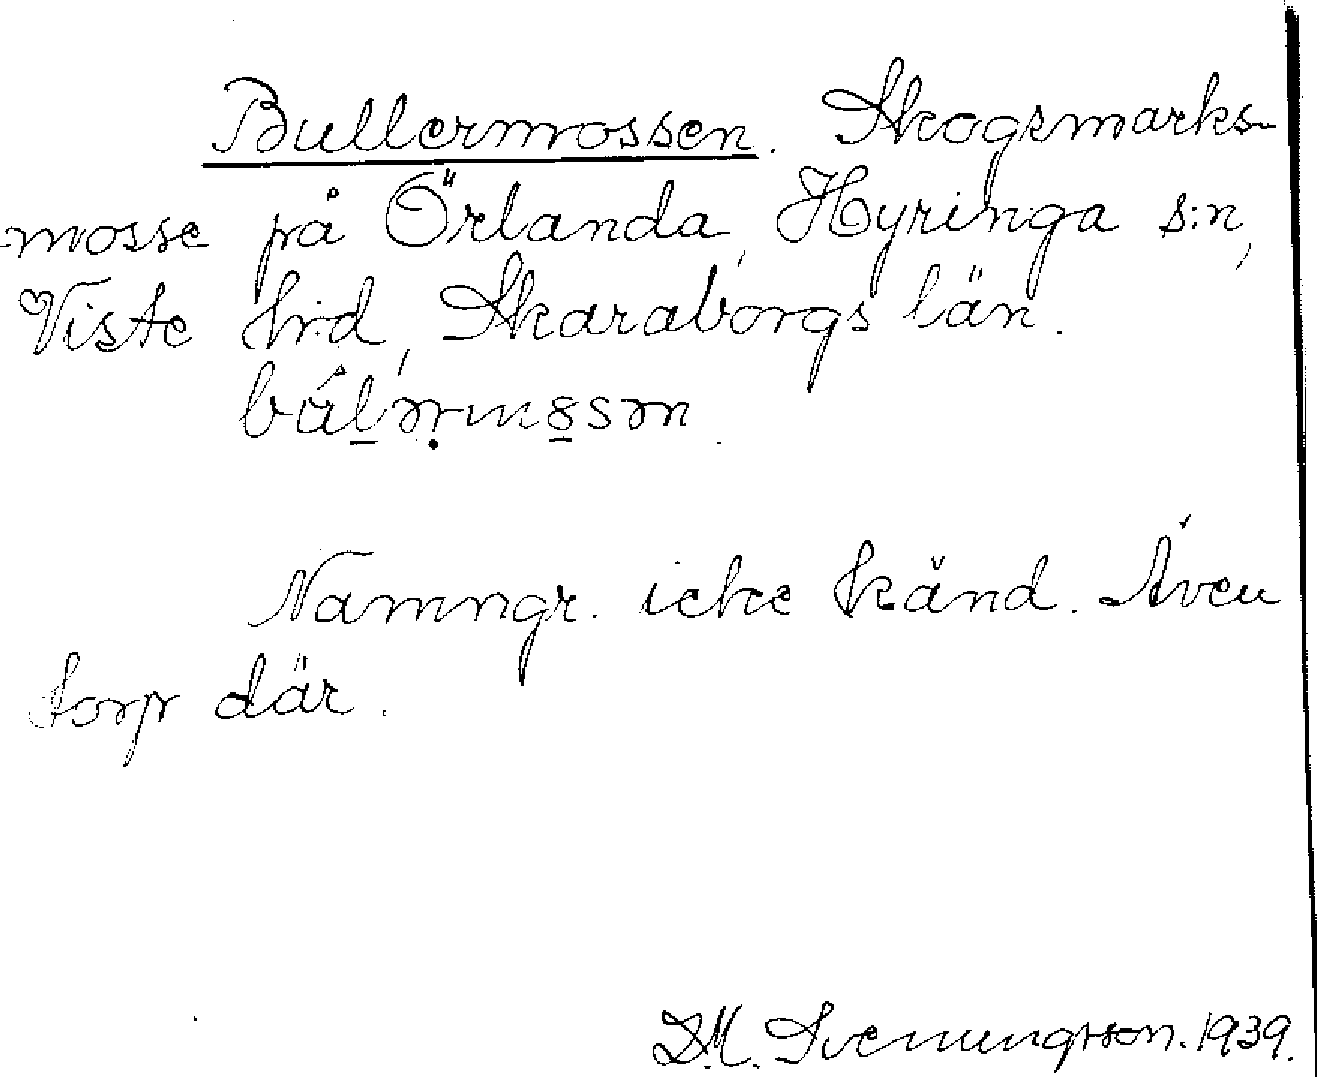 Bullermossen. Skogsmarks-
mosse på Örlanda, Hyringa s:n,
Viste hrd, Skaraborgs län.

Namngr. icke känd. Även
torp där.
D.M. Svenungsson. 1939.